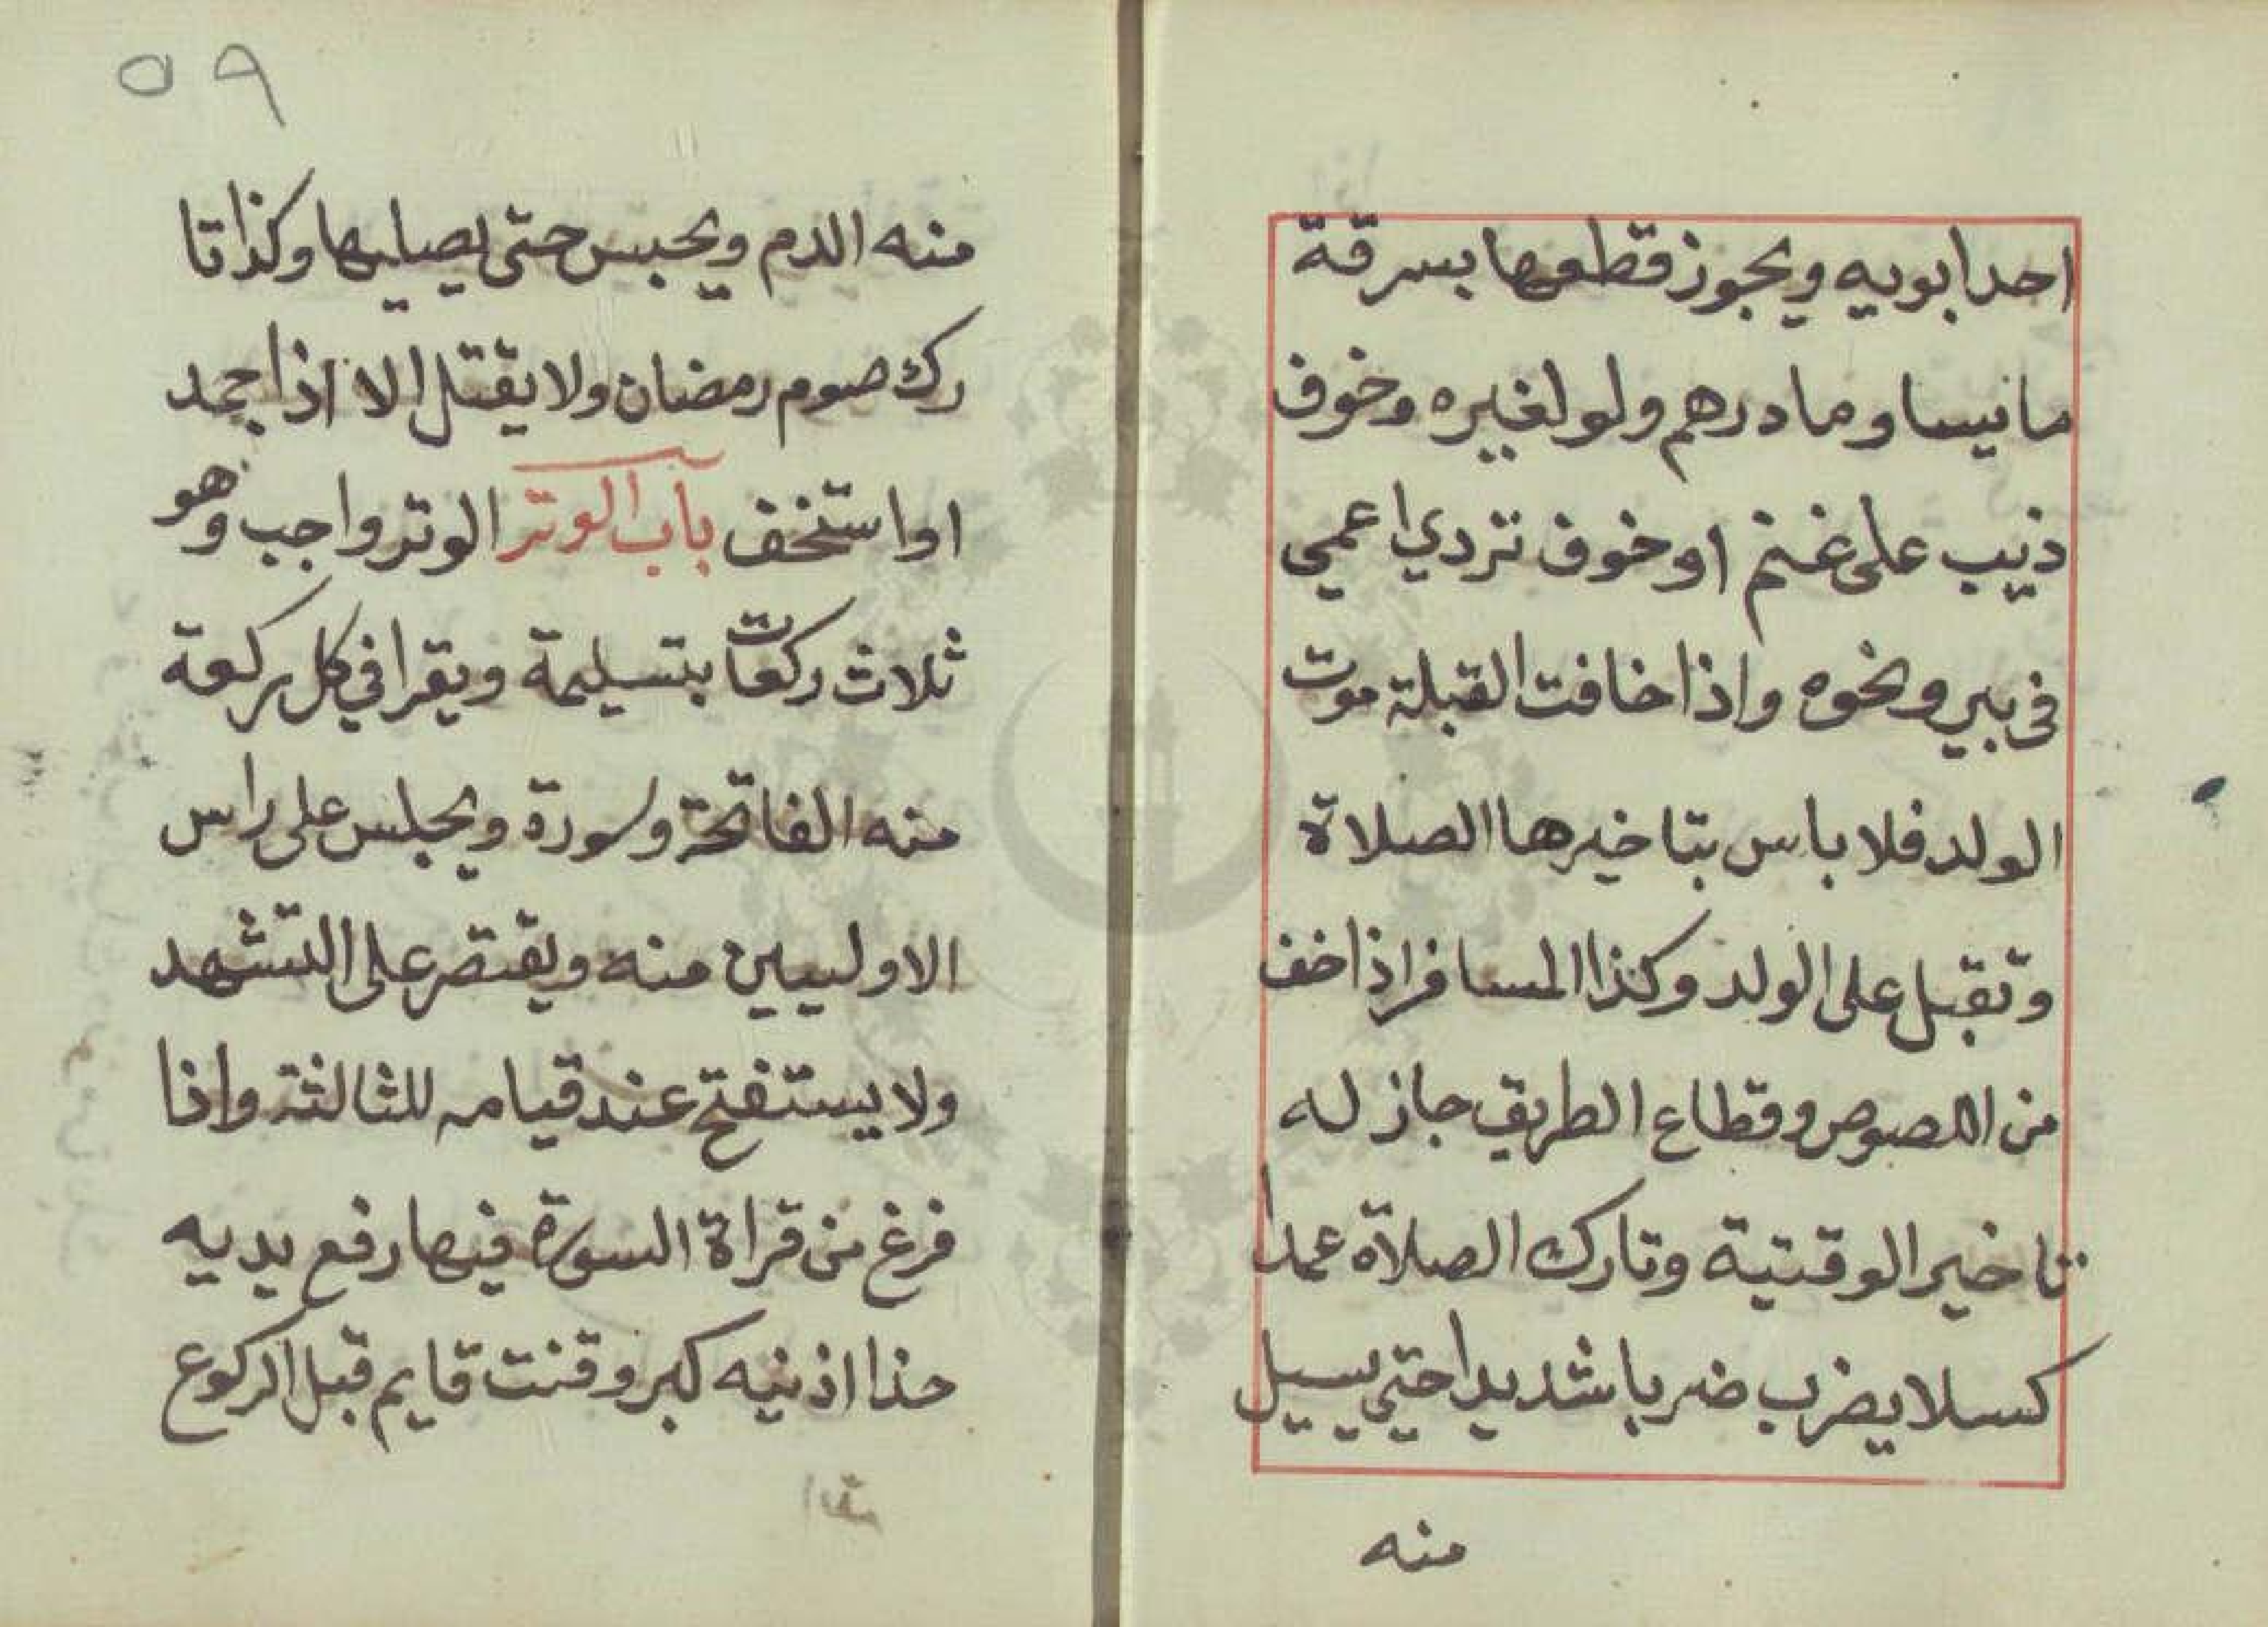 احد ابويه ويجوز قطعها بسرقة
ما نيسا وما درهم ولو لغيره وخوف
ذيب على غنم او خوف تردي اعمي
في بير ونحوه واذا خافت القبلة موت
الولد فلا باس بتاخيرها الصلاة
وتقبل على الولد وكذا المسافر اذا خف
من اللصوص وقطاع الطريق جاز له
تاخير الوقتية وتارك الصلاة عمدا
كسلا يضرب ضربا شديدا حتي يسيل
منه
٥٩
منه الدم ويحبس حتى يصليها وكذا تا
رك صوم رمضان ولا يقتل الا اذا جحد
او استخف باب الوتر الوتر واجب وهو
ثلاث ركعات بتسليمة ويقرا في كل ركعة
منه الفاتحة وسورة ويجلس على راس
الاوليين منه ويقتصر على التشهد
ولا يستفتح عند قيامه للثالثة واذا
فرغ من قراة السورة فيها رفع يديه
حذا اذنيه كبر وقنت قايم قبل الركوع